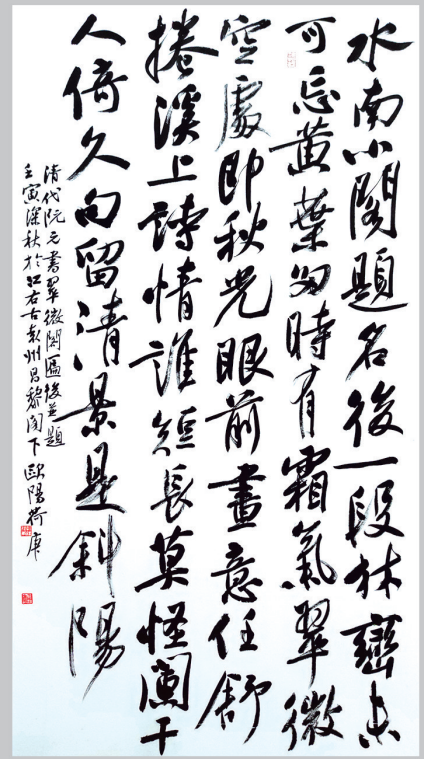 水南小閣題名後一段林巒未
可忘黃葉多時有霜氣翠微
空處即秋光眼前畫意任舒
捲溪上詩情誰短長莫怪闌干
人倚久向留清景是斜陽
清代阮元書翠微閣匾後並題
壬寅深秋於江右古袁州昌黎閣下歐陽荷庚